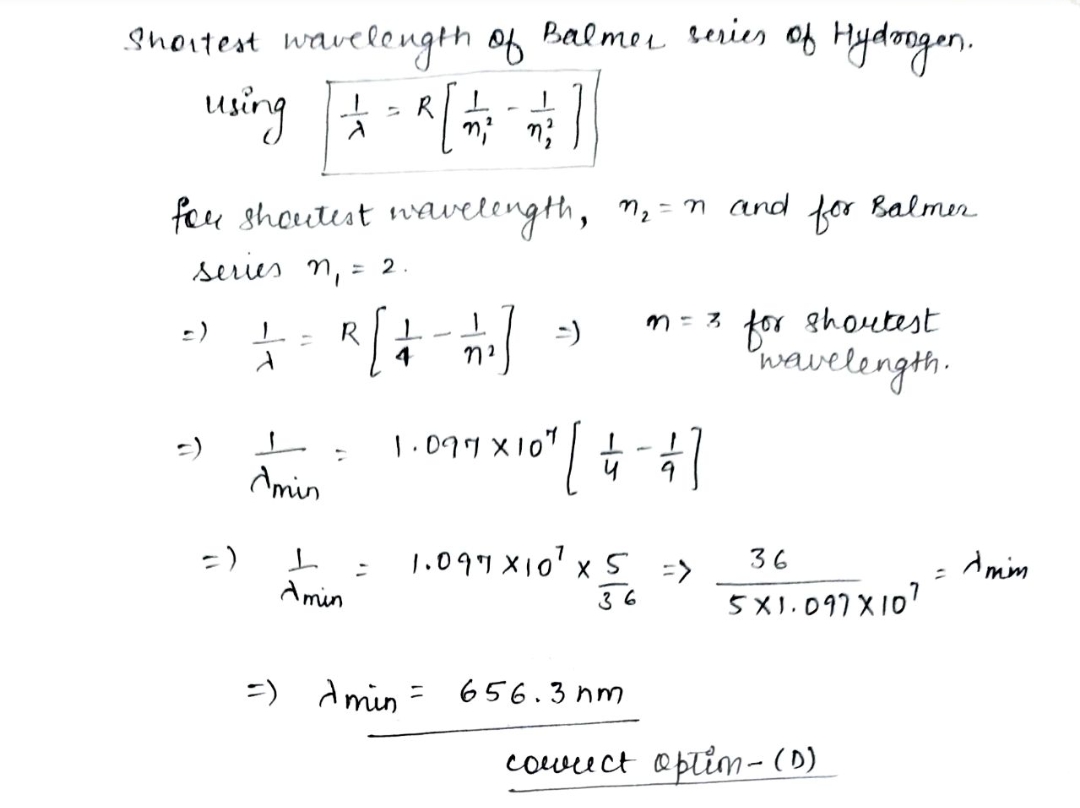 Shortest wavelength of Balmer series of Hydrogen.
using 1/λ = R[1/n₁² - 1/n₂²]
for shortest wavelength, n₂ = n and for Balmer
series n₁ = 2.
=) 1/λ = R[1/4 - 1/n²] =) n = 3 for shortest
wavelength.
=) 1/λmin = 1.097 × 10⁷ [1/4 - 1/9]
=) 1/λmin = 1.097 × 10⁷ × 5/36 => 36/(5 × 1.097 × 10⁷) = λmin
=) λmin = 656.3 nm
correct option - (D)